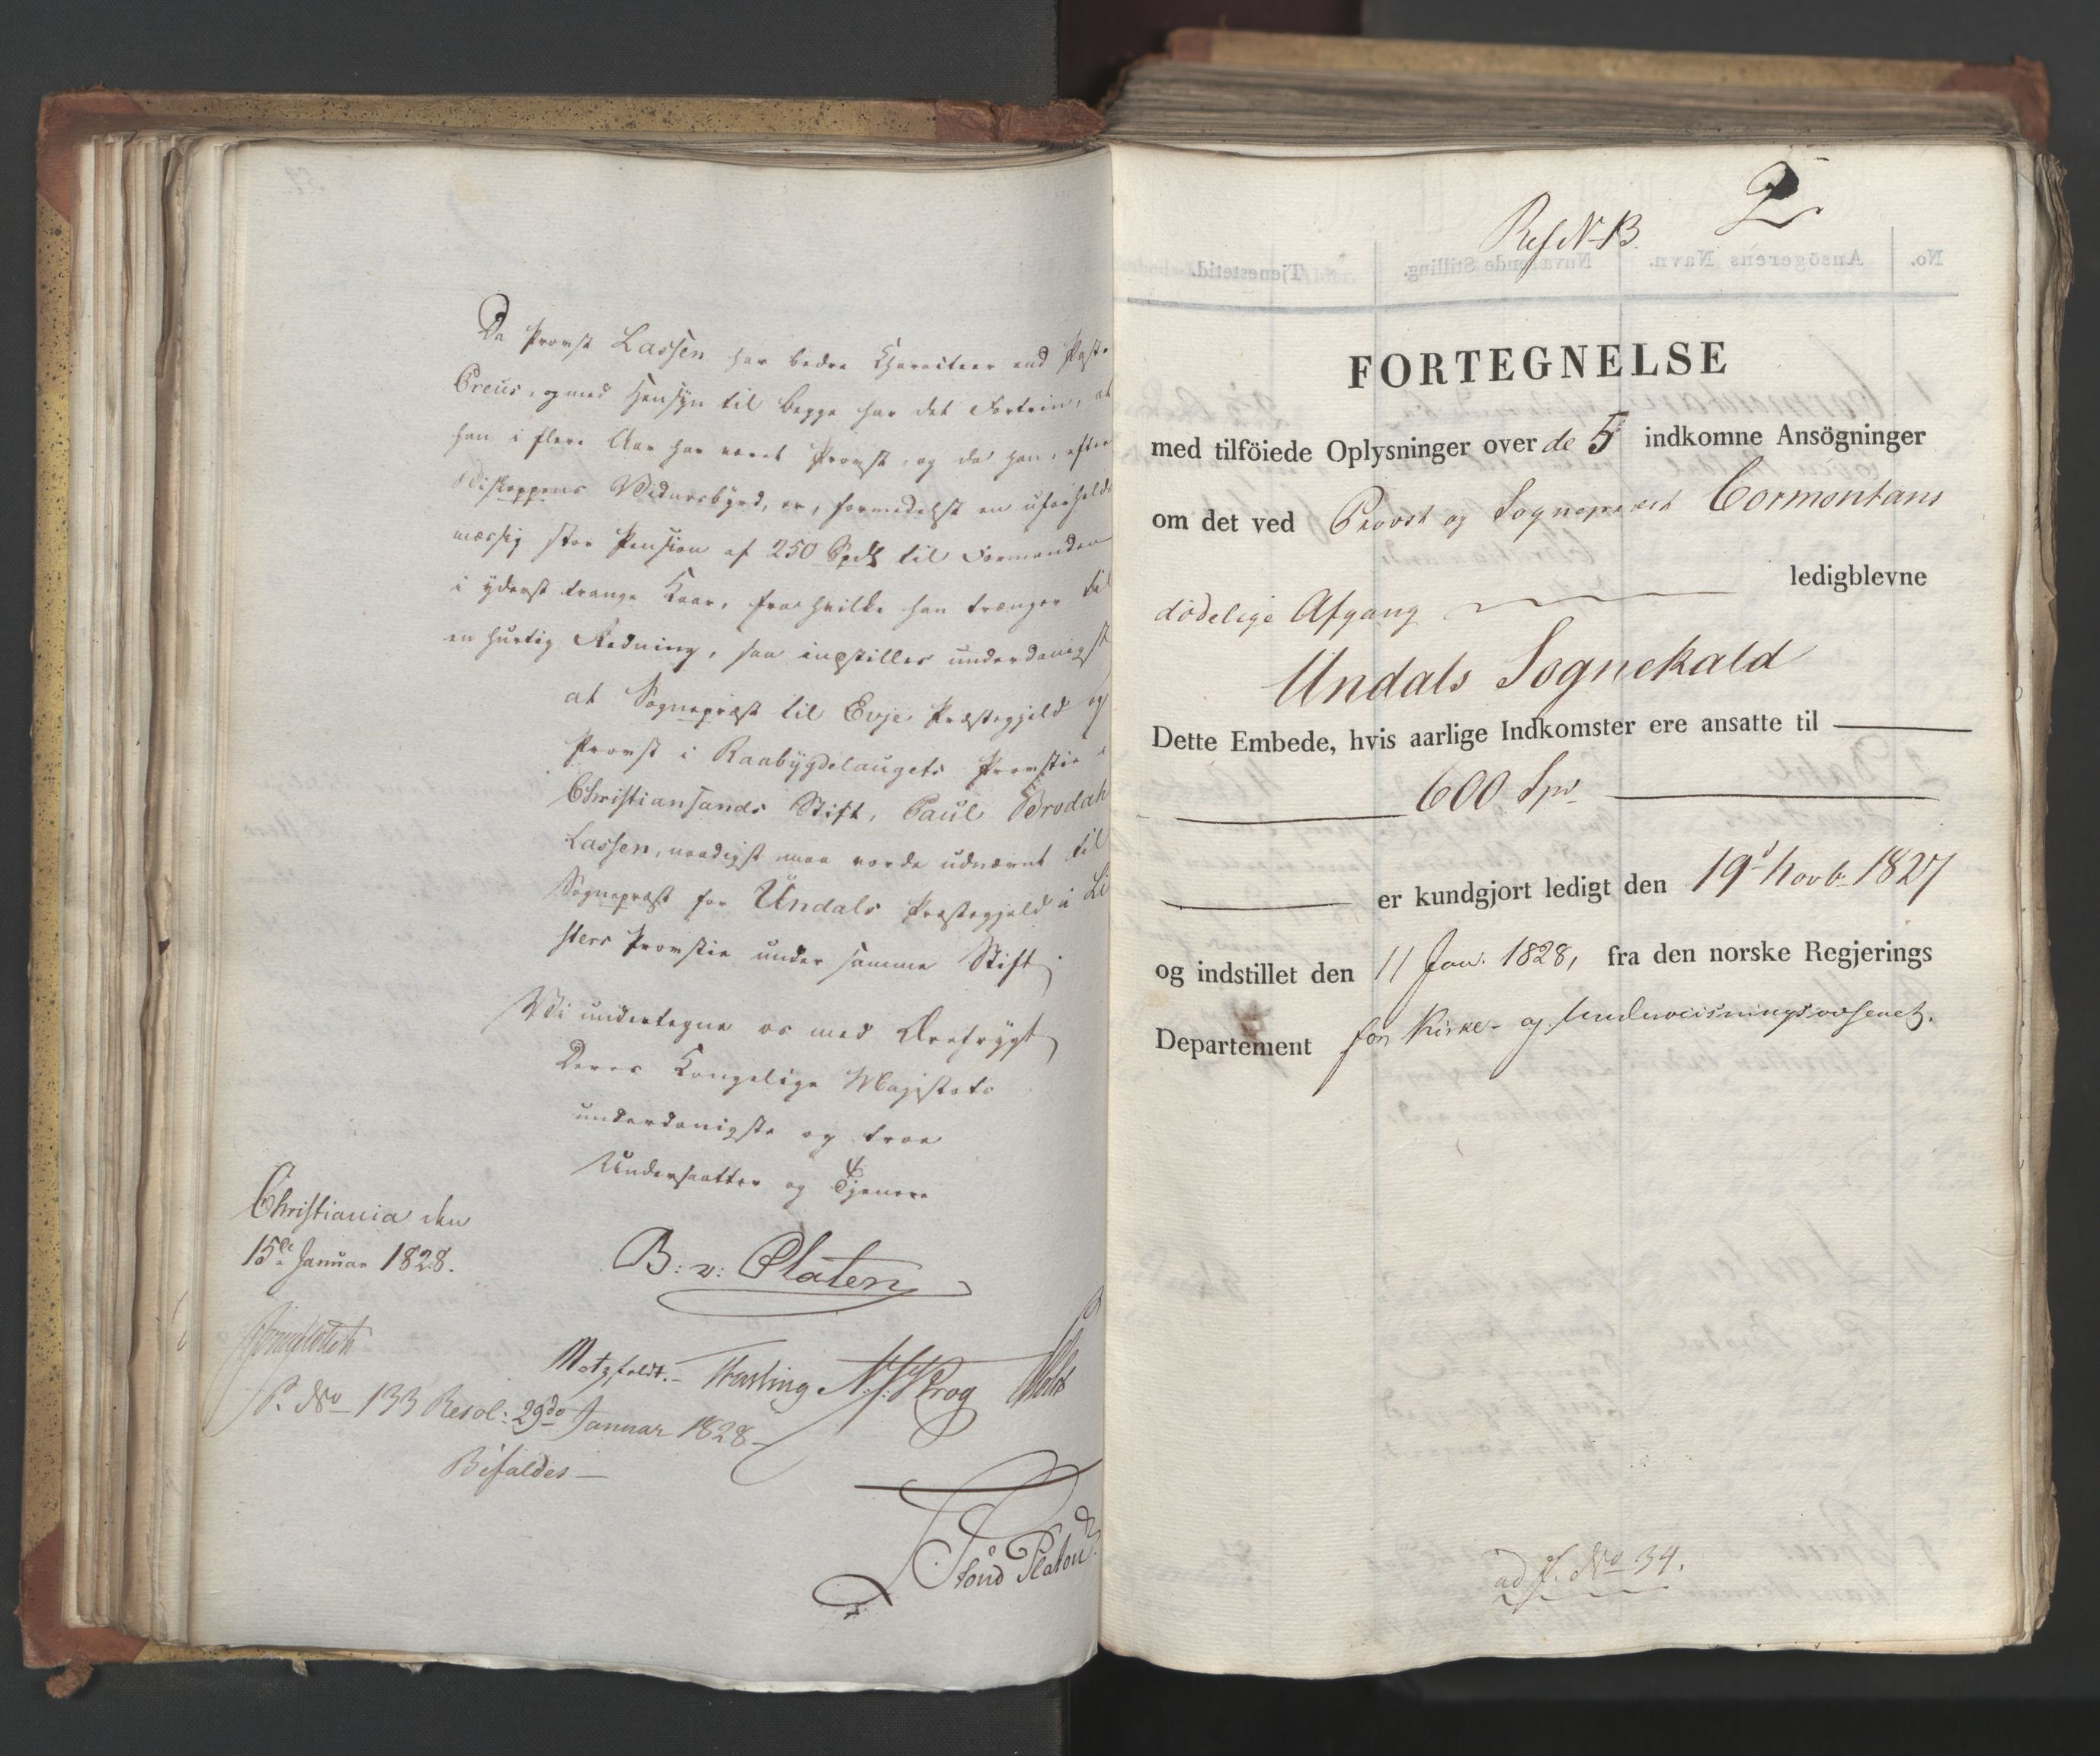 Da Provst Lassen har bedre Charakteer end Past.
Preus, og med Hensyn til begge har det Fortrin, at
han i flere Aar har været Provst, og da han, efter
Biskoppens Vidnesbyrd, er, formedelst en uforholds
mæssig stor Pension af 250 Spd til Formanden
i yderst trange Kaar, fra hvilke han trænger til
en hurtig Redning, saa indstilles underdanigst
at Sognepræst til Evje Præstegjeld og
Provst i Raabygdelaugets Provstie i
Christiansands Stift, Paul Brodahl
Lassen, naadigst maa vorde udnævnt til
Sognepræst for Undals Præstegjeld i Li
sters Provstie under samme Stift.
Vi undertegne os med Ærefrygt
Deres Kongelige Majestæts
underdanigste og troe
Undersaatter og Tjenere
Christiania den
15de Januar 1828.
B: v: Platen
Motzfeldt. N. J. Krog
P. No 133 Resol: 29de Januar 1828
Bifaldes
Platou
2
Ref N 13.
FORTEGNELSE
med tilföiede Oplysninger over de 5 indkomne Ansögninger
om det ved Provst og Sognepræst Cormontans
dødelige Afgang ledigblevne
Undals Sognekald
Dette Embede, hvis aarlige Indkomster ere ansatte til
600 Spd
er kundgjort ledigt den 19d Novbr 1827
og indstillet den 11 Jan. 1828, fra den norske Regjerings
Departement for Kirke- og Underviisningsvæsenet.
ad P. No 34.